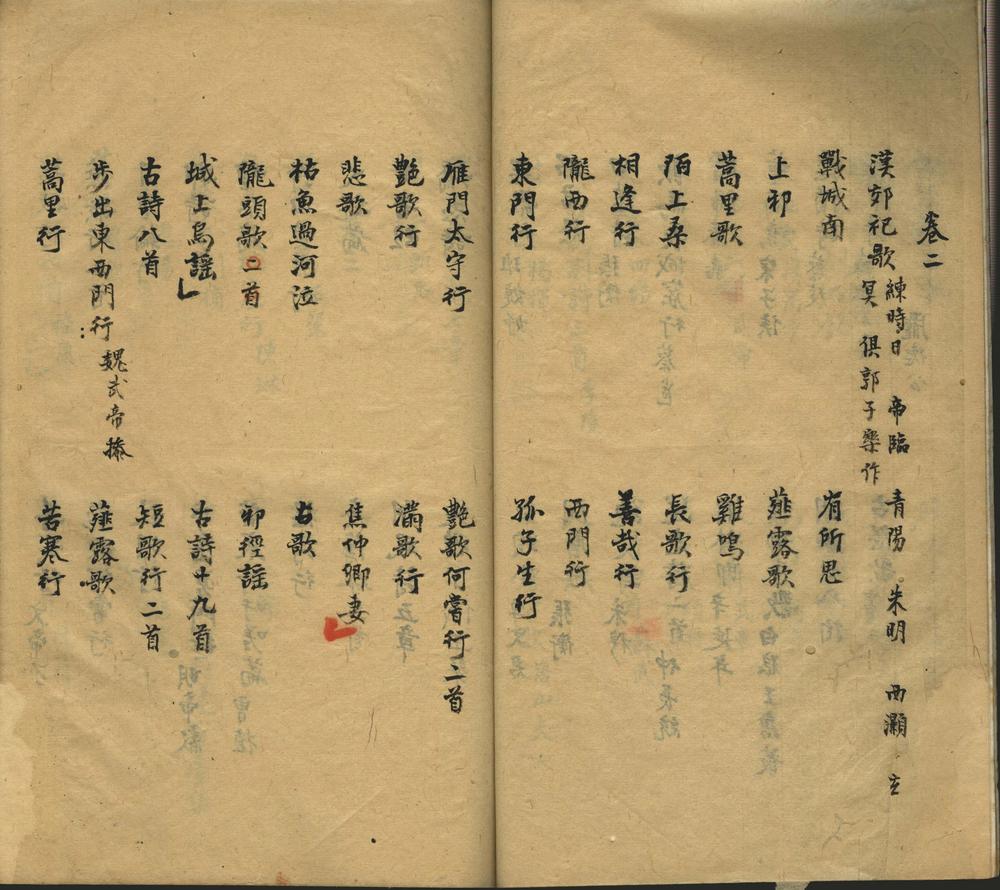 卷二
漢郊祀歌 練時日 帝臨 青陽 朱明 西灝 玄
冥 俱郭子樂作
戰城南 有所思
上邪 薤露歌
蒿里歌 雞鳴
陌上桑 長歌行
相逢行 善哉行
隴西行 西門行
東門行 孤子生行
雁門太守行 艷歌何嘗行二首
艷歌行 滿歌行
悲歌 焦仲卿妻
枯魚過河泣 古歌
隴頭歌二首 邪徑謠
城上烏謠 古詩十九首
古詩八首 短歌行二首
步出東西門行 魏武帝操 薤露歌
蒿里行 苦寒行